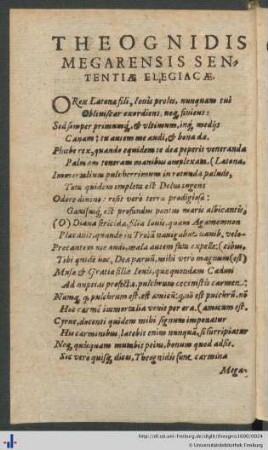 THEOGNIDIS
MEGARENSIS SEN-
TENTIÆ ELEGIACÆ.
O Rex Latonæ fili, Iouis proles, nunquam tui
Obliuiscar exordiens, neq; finiens:
Sed semper primumq́; & vltimum, inq́; medijs
Canam: tu autem me audi, & bona da.
Phœbe rex, quando equidem te dea peperit veneranda
Palmam teneram manibus amplexam. (Latona,
Immortalium pulcherrimum in rotunda palude,
Tota quidem impleta est Delus ingens
Odore diuino: risit verò terra prodigiosa:
Gauisusq́; est profundus pontus maris albicantis,
(O) Diana fericida, filia Iouis, quam Agamemnon
Placauit quando in Troiã nauigabat nauib. velo-
Precantem me audi, mala autem fata expelle: (cibus,
Tibi quidẽ hoc, Dea paruũ, mihi verò magnum (est)
Musæ & Gratiæ filiæ Iouis, quæ quondam Cadmi
Ad nuptias profectæ, pulchrum cecinistis carmen:
Namq; q, pulchrum est, est amicũ: quod nõ est pulchrũ, nõ
Hoc carmẽ immortalia venit per ora. (amicum est.
Cyrne, docenti quidem mihi signum imponatur
His carminibus, latebit enim nunquã, si surripiatur
Neq; quisquam mutabit peius, bonum quod adsit.
Sic verò quisq; dicet, Theognidis sunt carmina
Mega-
http://digi.ub.uni-freiburg.de/diglit/theognis1600/0024
Universitätsbibliothek Freiburg